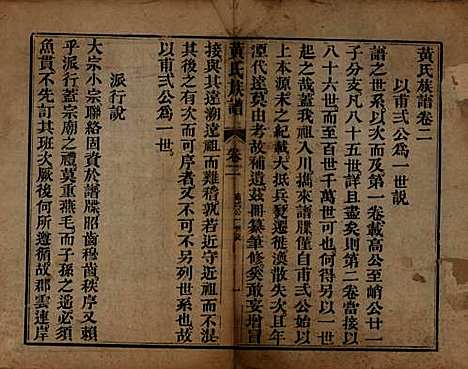 黃氏族譜卷二
以甫弍公爲一世說
譜之世系以次而及第一卷載高公至峭公廿一
子分支凡八十五世詳且盡矣則第二卷當接以
八十六世即多至千百千萬世可也何得另以一世
起之哉蓋我祖入川攜來譜牒僅自甫弍公始以
上本源未之紀載大抵兵燹遷徙渙散失次且年
湮代遠莫由考故補遺茲冊纂筆修矣敢妄增冒
接與其遠溯遠祖而難稽孰若近守近祖而不混
之爲有次而可序者又不可不另列世系也故
以甫弍公爲一世
派行說
大宗小宗聯絡固資於譜牒昭齒穆齒秩序又賴
乎派行蓋宗廟之禮莫重燕毛而子孫之遙必須
魚貫不先訂其班次厥後何所遵循故郡雲連岸
黃氏族譜
卷二